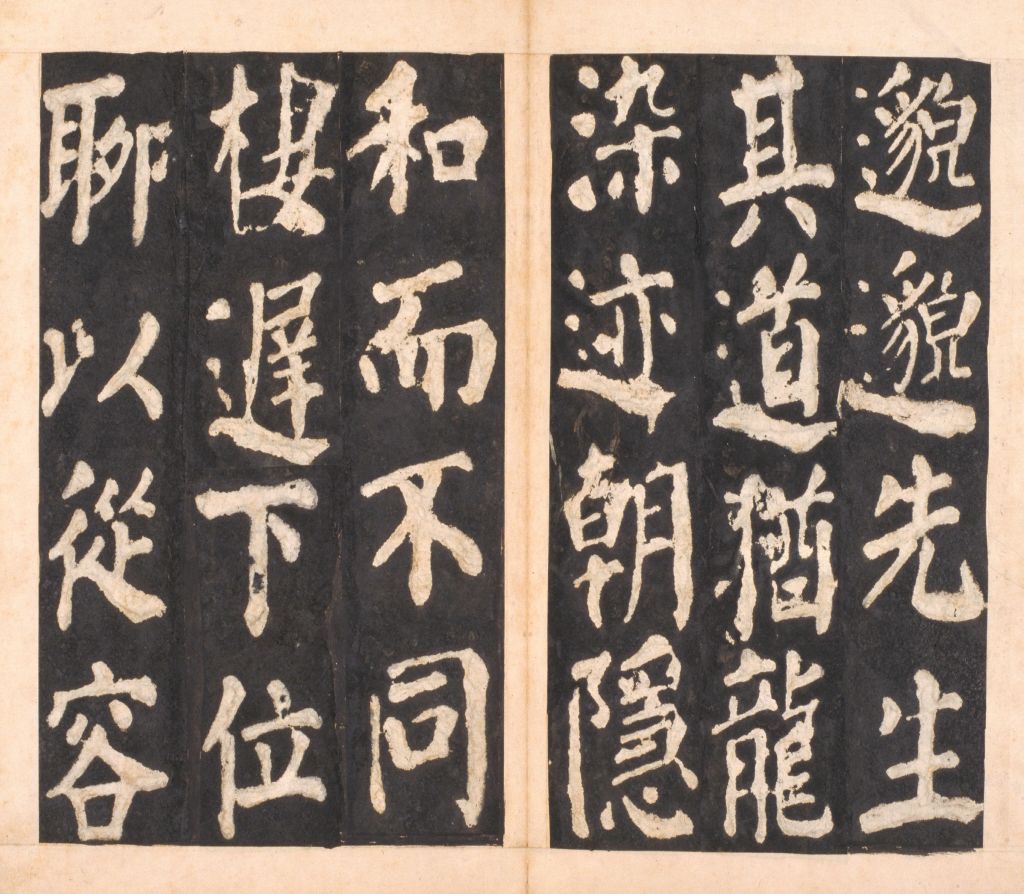 邈邈先生
其道猶龍
染迹朝隱
和而不同
棲遲下位
聊以從容